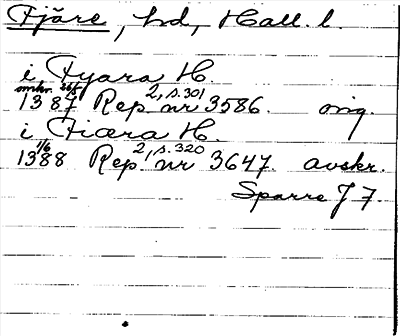 Fjäre, hd, Hall. l.
i Fyara H.
omkr. 26/5 1387 Rep. 2, s. 301 nr 3586. orig.
i Fiæra H.
1/6 1388 Rep. 2, s. 320 nr 3647. avskr.
Sparre J 7.